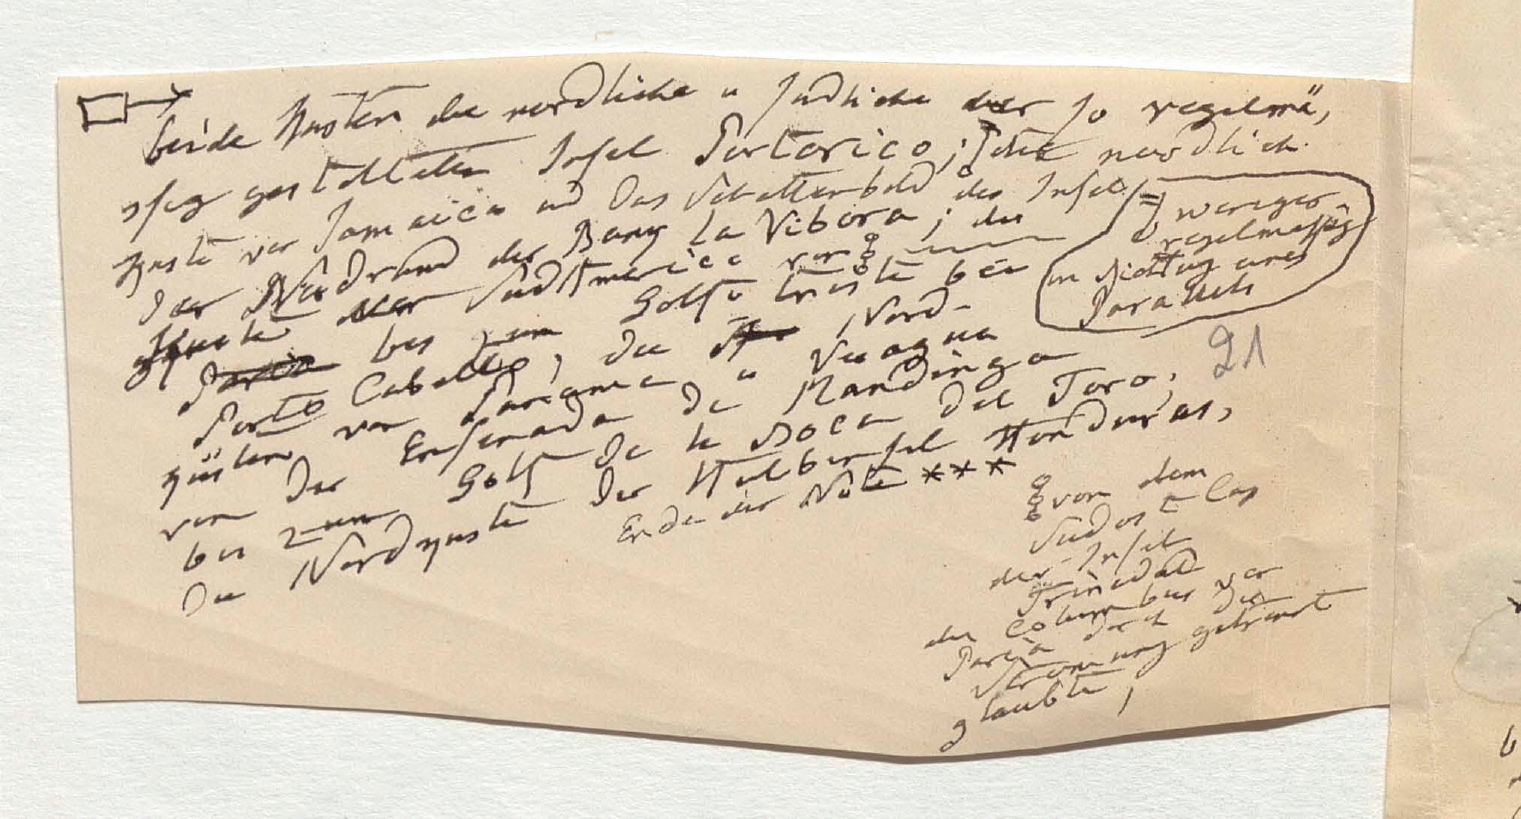 beide Küsten die nordliche u südliche der so regelmä,
ssig gestalteten Insel Portorico; die nordlich.
Küste von Jamaica und das Schattenbild der Insel
der Nordrand der Bank La Vibora; die
Küste von Südamerica von
Paria bis zum Golfo triste bei
Porto Cabello, die Nord-
küsten von Panama u Veragua
von der Ensenada de Mandinga
bis zum Golf de la Boca del Toro,
die Nordküste der Halbinsel Honduras,
Ende der Note ***
weniger
regelmässig
in Richtung eines
Parallels
21
von dem
Südost Cap
der Insel
Trinidad
die Columbus von
Paria durch die
Strömung getrennt
glaubte,